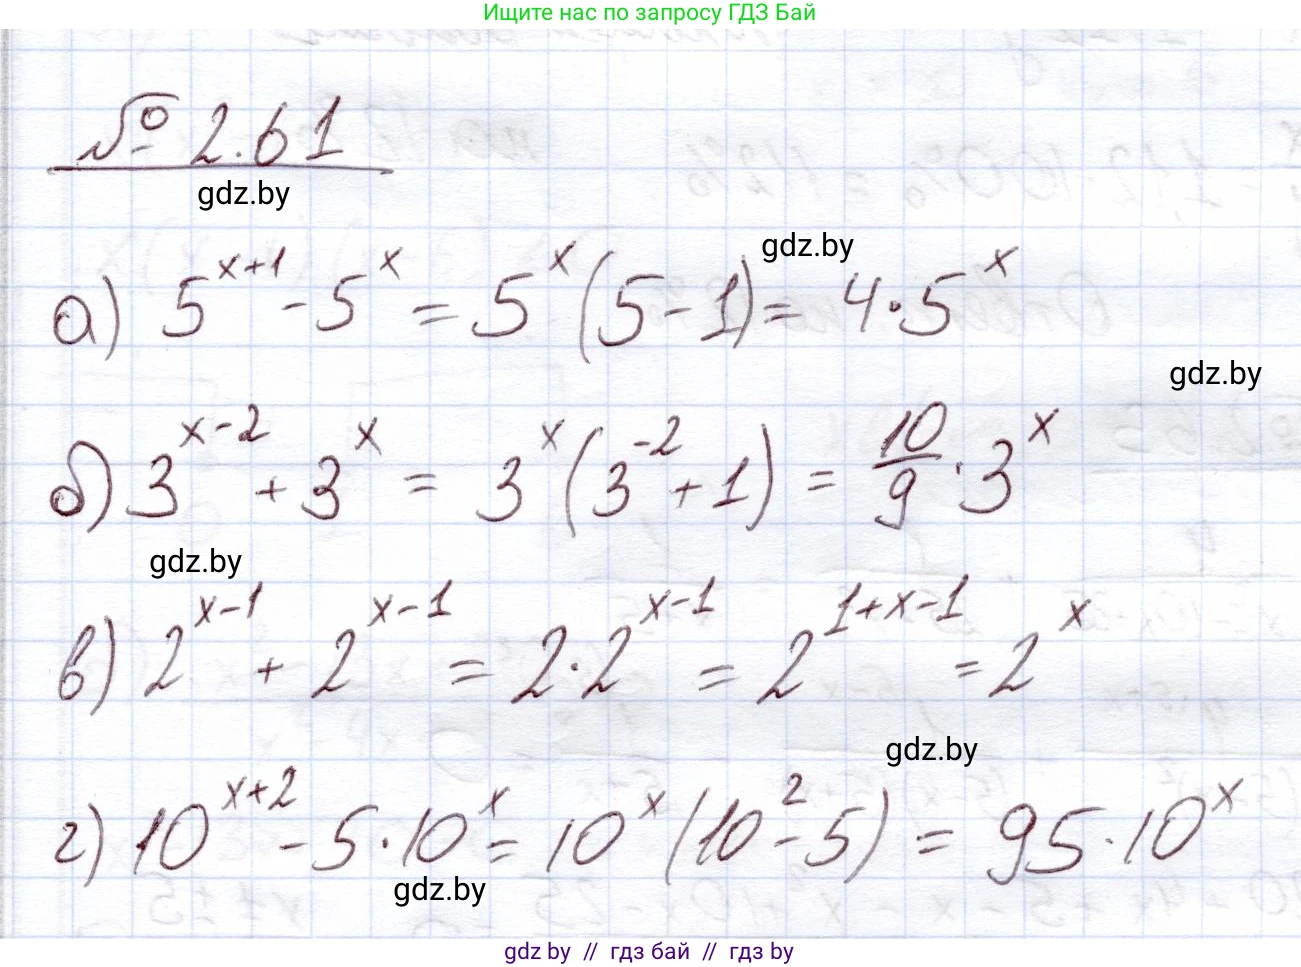 Ищите нас по запросу ГДЗ Бай
№ 2.61
gdz.by
gdz.by
а) 5^{x+1} - 5^x = 5^x (5 - 1) = 4·5^x
gdz.by
б) 3^{x-2} + 3^x = 3^x (3^{-2} + 1) = \frac{10}{9} · 3^x
gdz.by
в) 2^{x-1} + 2^{x-1} = 2·2^{x-1} = 2^{1+x-1} = 2^x
gdz.by
г) 10^{x+2} - 5·10^x = 10^x (10^2 - 5) = 95·10^x
gdz.by
gdz by // гдз бай // гдз by